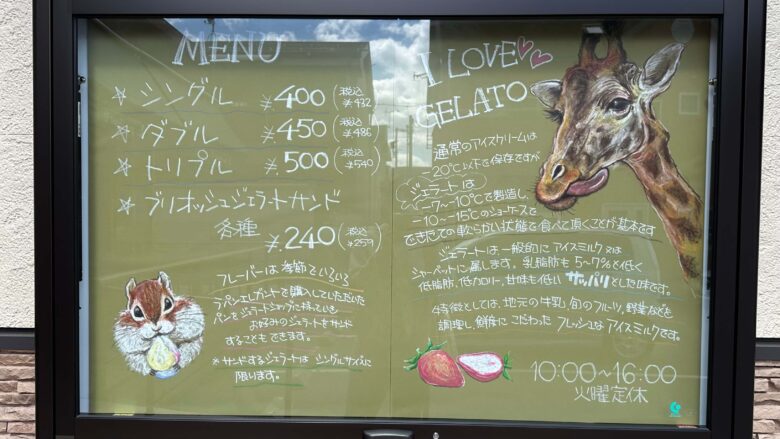 MENU
☆ シングル ¥400 (税込 ¥432)
☆ ダブル ¥450 (税込 ¥486)
☆ トリプル ¥500 (税込 ¥540)
☆ ブリオッシュジェラートサンド
各種 ¥240 (税込 ¥259)
フレーバーは季節でいろいろ
ラパンエレガントで購入していただいた
パンをジェラートショップに持っていき
お好みのジェラートをサンド
することもできます。
* サンドするジェラートは シングルサイズに
限ります。
I LOVE
GELATO
通常のアイスクリームは
-20℃以下で保存ですが
ジェラートは
-7~-10℃で製造し、
-10~-15℃のショーケースで
できたての軟らかい状態で食べて頂くことが基本です
ジェラートは一般的にアイスミルク又は
シャーベットに属します。乳脂肪も5~7%と低く
低脂肪、低カロリー、甘味も低いサッパリとした味です。
特徴としては、地元の牛乳、旬のフルーツ、野菜などを
調理し、鮮度にこだわったフレッシュなアイスミルクです。
10:00~16:00
火曜定休